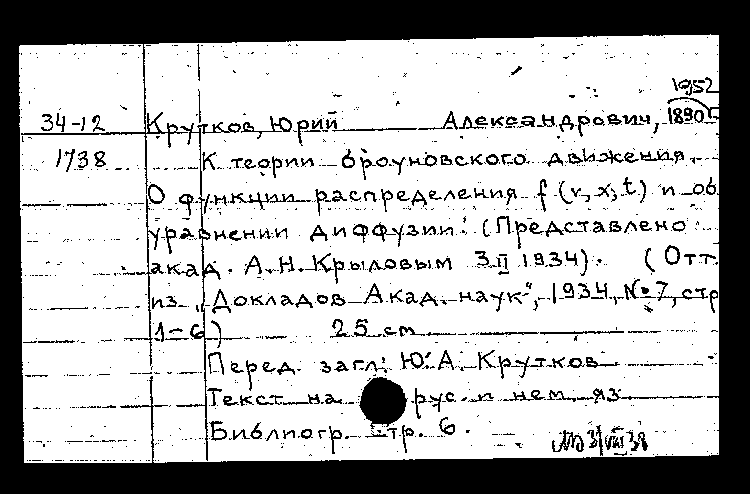 1952
34-12 Крутков, Юрий Александрович, 1890
1738 К теории броуновского движения.
О функции распределения f (v, x, t) и об
уравнении диффузии. (Представлено
акад. А.Н. Крыловым 3 II 1934). (Отт.
из „Докладов Акад. наук", 1934, № 7, стр
1-6) 25 см
Перед. загл: Ю.А. Крутков
Текст на рус. и нем. яз.
Библиогр. стр. 6.
31 VIII 38